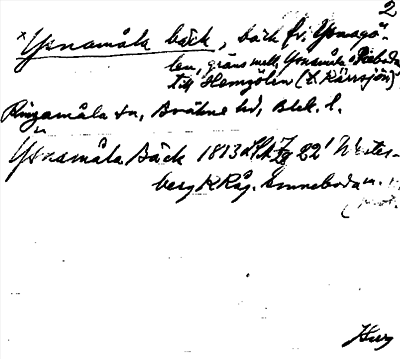 2
× Ysnamåla bäck, bäck fr. Ysnagö-
len, gräns mell. Ysnamåla o
till Hemgölen (t. Kärrsjön)
Ringamåla sn, Bräkne hd, Blek. l.
Ysnamåla Bäck 1813 22' Wester-
berg K Råg. Enneboda